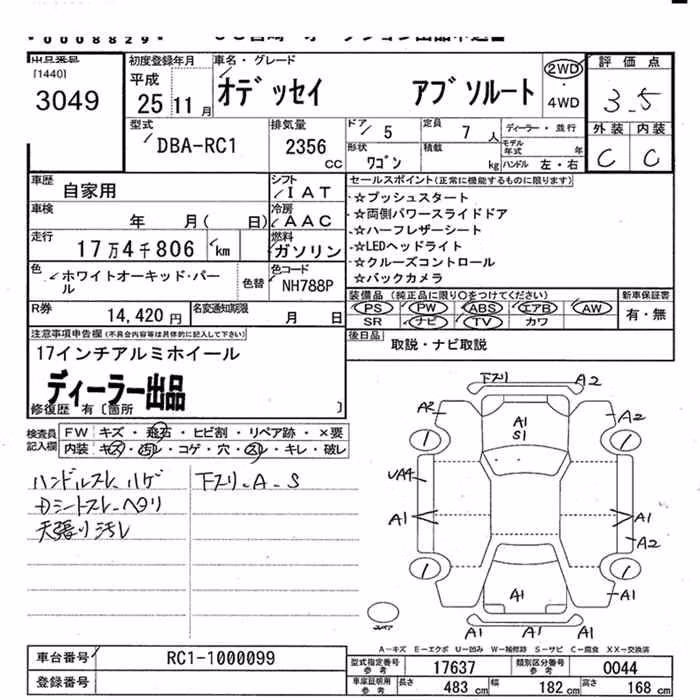 *0008829*
[1440]
初度登録年月 車名・グレード
評価点
3049
平成
25 11月
オデッセイ アブソルート
2WD
・
4WD
3.5
型式
DBA-RC1
排気量
2356
CC
ドア 5
定員 7 人
ディーラー・並行
外装 内装
形状 ワゴン
積載 kg
モデル年式 年
ハンドル 左・右
C C
車歴 自家用
シフト IAT
セールスポイント(正常に機能するものに限ります)
☆プッシュスタート
車検 年 月( 日)
冷房 AAC
☆両側パワースライドドア
☆ハーフレザーシート
走行 17万4千806 km
燃料 ガソリン
☆LEDヘッドライト
☆クルーズコントロール
色 ホワイトオーキッド・パール
色替
色コード NH788P
☆バックカメラ
装備品(純正品に限り○をつけてください)
新車保証書
PS PW ABS エアB AW
有・無
R券 14,420 円
名変通知期限 月 日
SR ナビ TV カワ
注意事項申告欄(不具合内容等は具体的に記入して下さい)
後日品 取説・ナビ取説
17インチアルミホイール
ディーラー出品
修復歴 有〔箇所 〕
下スリ A2
A2 A1 A2
S1
検査員
記入欄
FW キズ・飛石・ヒビ割・リペア跡・×要
内装 キズ・汚レ・コゲ・穴・スレ・キレ・破レ
1 1
ハンドルスレ ハゲ
下スリ-A-S
UA4
Dシートスレ ヘタリ
天張り汚レ
A1 A1
A2
1 1
A1 A1
A1 A1 A1
A-キズ E-エクボ U-凹み W-補修跡 S-サビ C-腐食 XX-交換済
車台番号 RC1-1000099
型式指定番号 参考 17637
類別区分番号 参考 0044
登録番号
車庫証明用 参考
長さ 483 cm 幅 182 cm 高さ 168 cm